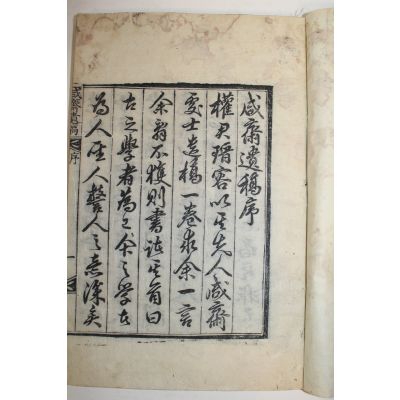 咸齋遺稿序
權君瑨容以其先人咸齋
處士遺稿一卷求余一言
余翁不獲則書諸其首曰
古之學者為己今之學者
為人聖人警人之意深矣
咸齋遺稿 序 一